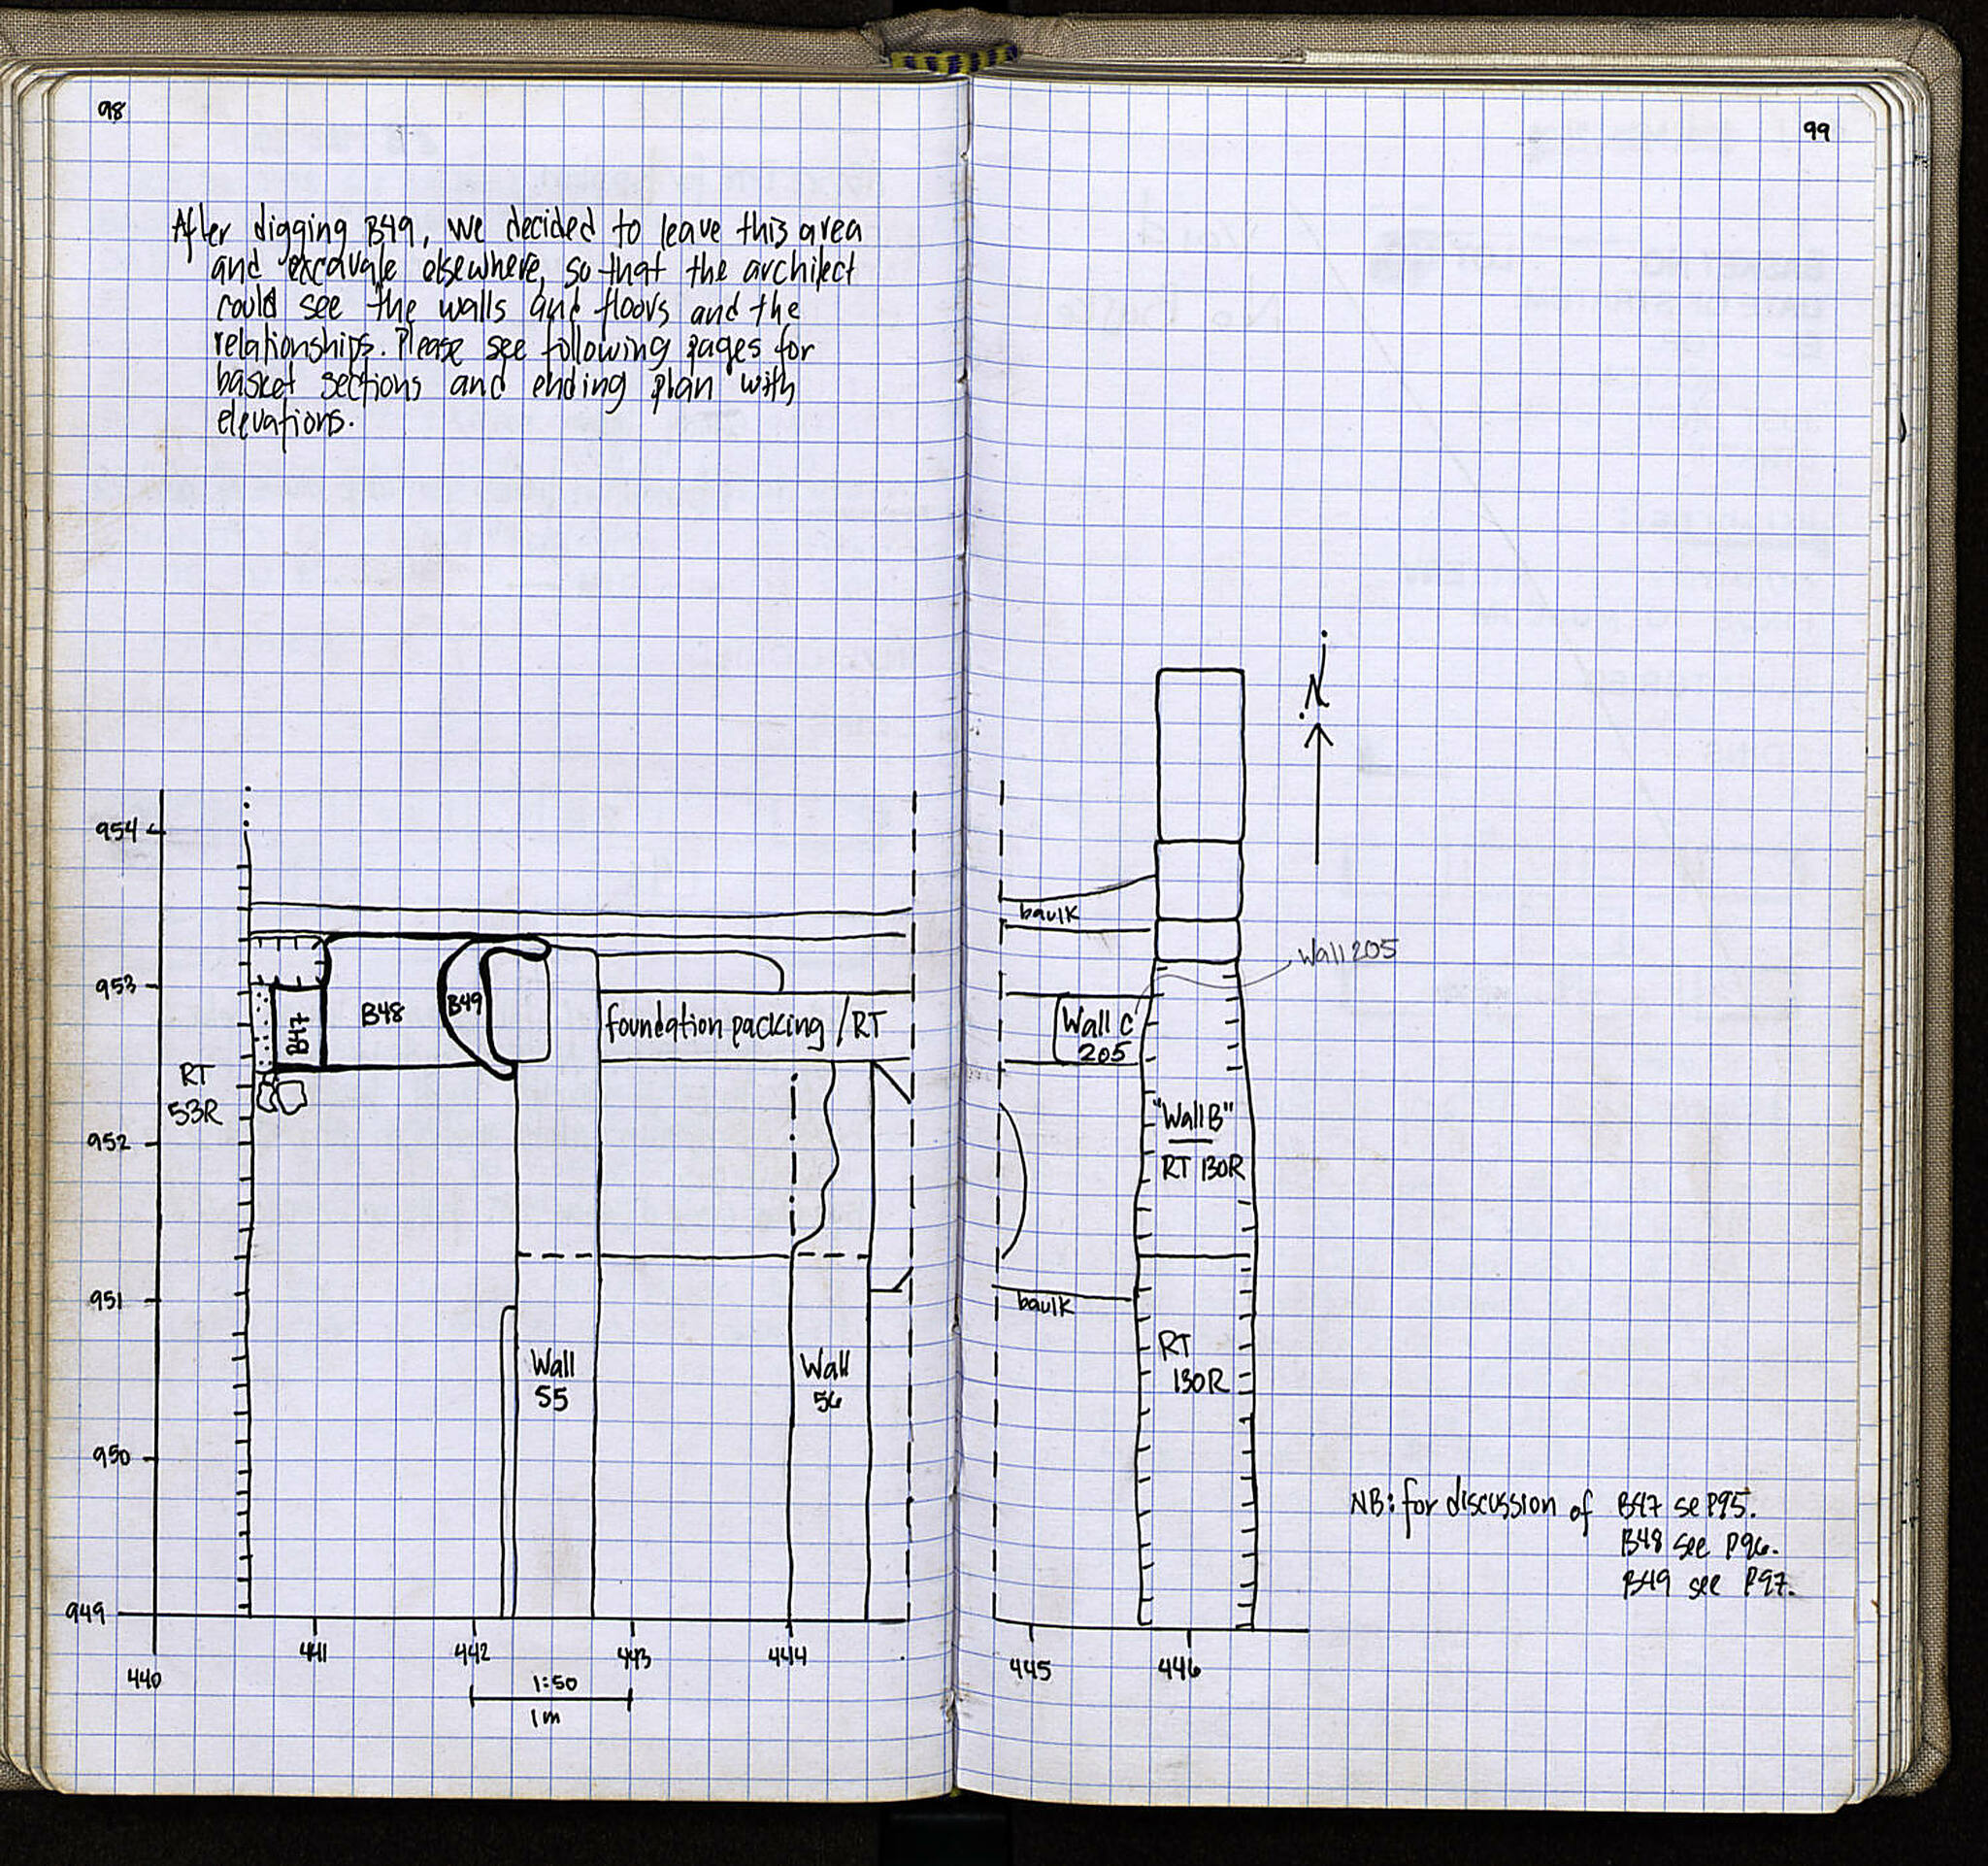 98
After digging B49, we decided to leave this area
and excavate elsewhere, so that the architect
could see the walls and floors and the
relationships. Please see following pages for
basket sections and ending plan with
elevations.
954
953
952
951
950
949
RT
53R
B47
B48
B49
foundation packing / RT
Wall
55
Wall
56
440
441
442
443
444
1:50
1m
99
N
baulk
Wall 205
Wall C
205
"Wall B"
RT 130R
baulk
RT
130R
445
446
NB: for discussion of B47 se P95.
B48 see P96.
B49 see P97.